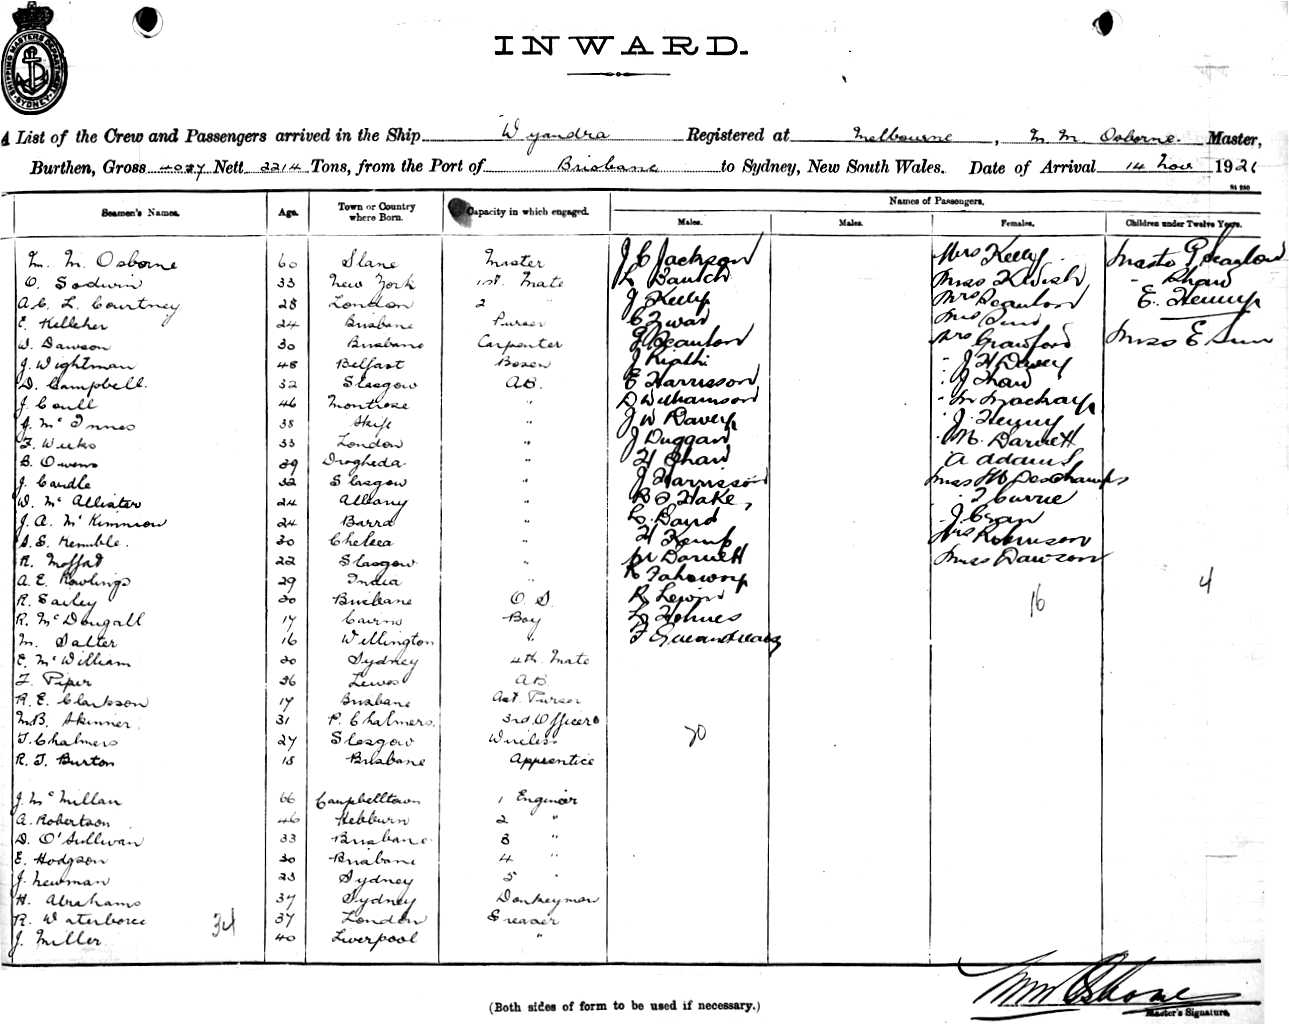 SHIPPING MASTERS DEPARTMENT SYDNEY
INWARD.
A List of the Crew and Passengers arrived in the Ship Wyandra Registered at Melbourne, M. M. Osborne. Master,
Burthen, Gross 4057 Nett 2214 Tons, from the Port of Brisbane to Sydney, New South Wales. Date of Arrival 14 Nov 1921
St 280
Seamen's Names. Age. Town or Country where Born. Capacity in which engaged. Names of Passengers.
Males. Males. Females. Children under Twelve Years.
M. M. Osborne 60 Slane Master J C Jackson Mrs Kelly
33 New York 1st. Mate L Bausch Miss " Shaw
A. C. L. Courtney 28 London 2 " J Kelly Mrs Beaulon E. Henny
E. Kelleher 24 Brisbane Purser C Zwar Mrs
W. Dawson 30 Brisbane Carpenter J Beaulon Mrs Crawford Miss E Sim
J. Wightman 48 Belfast Bosen J " J H Davey
D. Campbell. 32 Glasgow A.B. E Harrisson " J Shaw
J. Coull 46 Montrose " D Williamson " M Mackay
J. McInnes 38 Skye " J W Davey " J. Henny
F. Weeks 33 London " J Duggan " M. Darvett
B. Owens 29 Drogheda " H Shaw A Adams
J. Caudle 32 Glasgow " J Harrisson Miss Deschamps
W. McAllister 24 Albany " Hake, " T Currie
J. A. McKinnion 24 Barra " L. Baird " J. Cran
S. S. Kemble. 30 Chelsea " H Kemp Mrs Robinson
R. Moffat 22 Glasgow " M Darvett Miss Dawson
A. E. Rawlings 29 India " R
R. Sailey 20 Brisbane O.S. R Lewin 16 4
R. McDougall 17 Cairns Boy L Holmes
M. Salter 16 Wellington " F
E. McWilliam 20 Sydney 4th. Mate
F. Piper 26 Lewes A.B.
R. E. Clarkson 17 Brisbane Ast. Purser
M.B. Skinner. 31 P. Chalmers. 3rd. Officer
T. Chalmers 27 Glasgow Wireless 20
R. J. Burton 18 Brisbane Apprentice
J. McMillan 66 Campbelltown 1 Engineer
A. Robertson 46 Hebburn 2 "
D. O'Sullivan 33 Brisbane 3 "
E. Hodgson 30 Brisbane 4 "
J. Newman 23 Sydney 5 "
H. Abrahams 37 Sydney Donkeyman
R. Waterborce 34 37 London Greaser
J. Miller 40 Liverpool "
M M Osborne
(Both sides of form to be used if necessary.) Master's Signature.